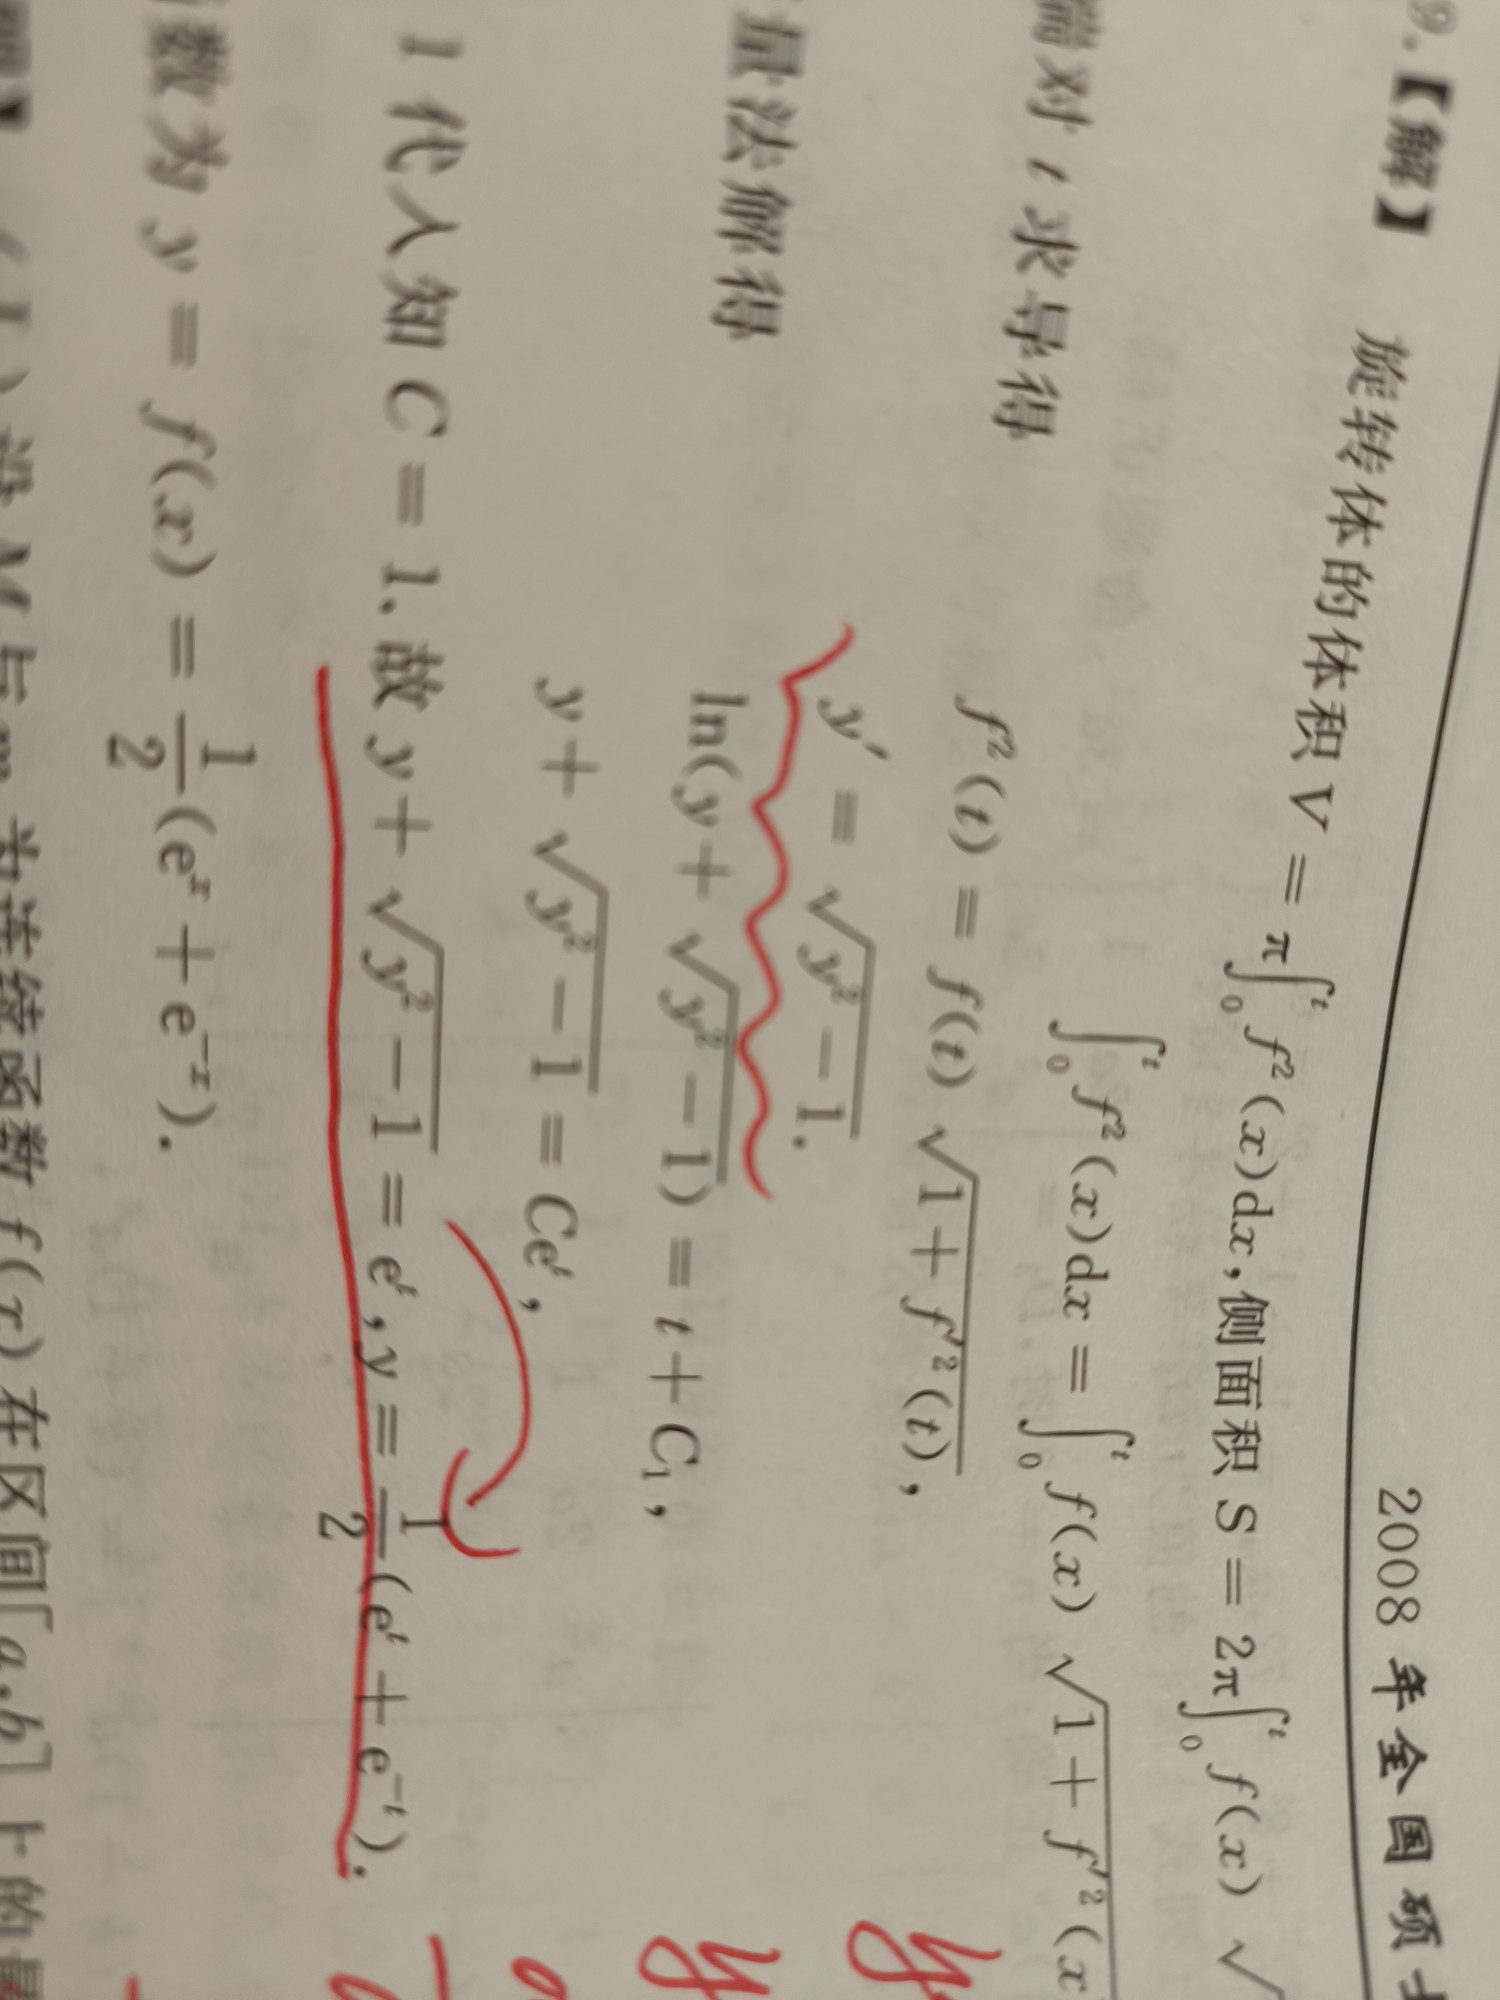 2008 年全国硕士
9.【解】 旋转体的体积 V = π∫₀ᵗ f²(x)dx,侧面积 S = 2π∫₀ᵗ f(x) √
∫₀ᵗ f²(x)dx = ∫₀ᵗ f(x) √(1 + f′²(x
端对 t 求导得
f²(t) = f(t) √(1 + f′²(t)),
y′ = √(y² − 1).
量法解得
ln(y + √(y² − 1)) = t + C₁,
y + √(y² − 1) = Ceᵗ,
1 代入知 C = 1. 故 y + √(y² − 1) = eᵗ, y = 1/2 (eᵗ + e⁻ᵗ).
数为 y = f(x) = 1/2 (eˣ + e⁻ˣ).
(Ⅰ) 设 M 与 m 为连续函数 f(x) 在区间[a,b] 上的最